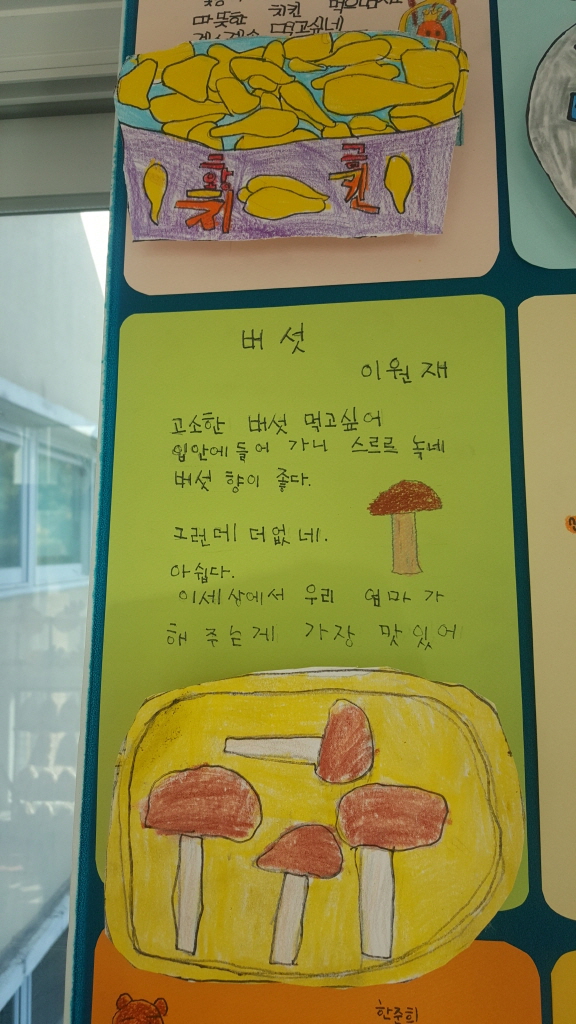 따뜻한 치킨
먹고싶네
버섯
이원재
고소한 버섯 먹고싶어
입안에 들어 가니 스르르 녹네
버섯 향이 좋다.
그런데 더없네.
아쉽다.
이세상에서 우리 엄마가
해 주는게 가장 맛있어
한주희